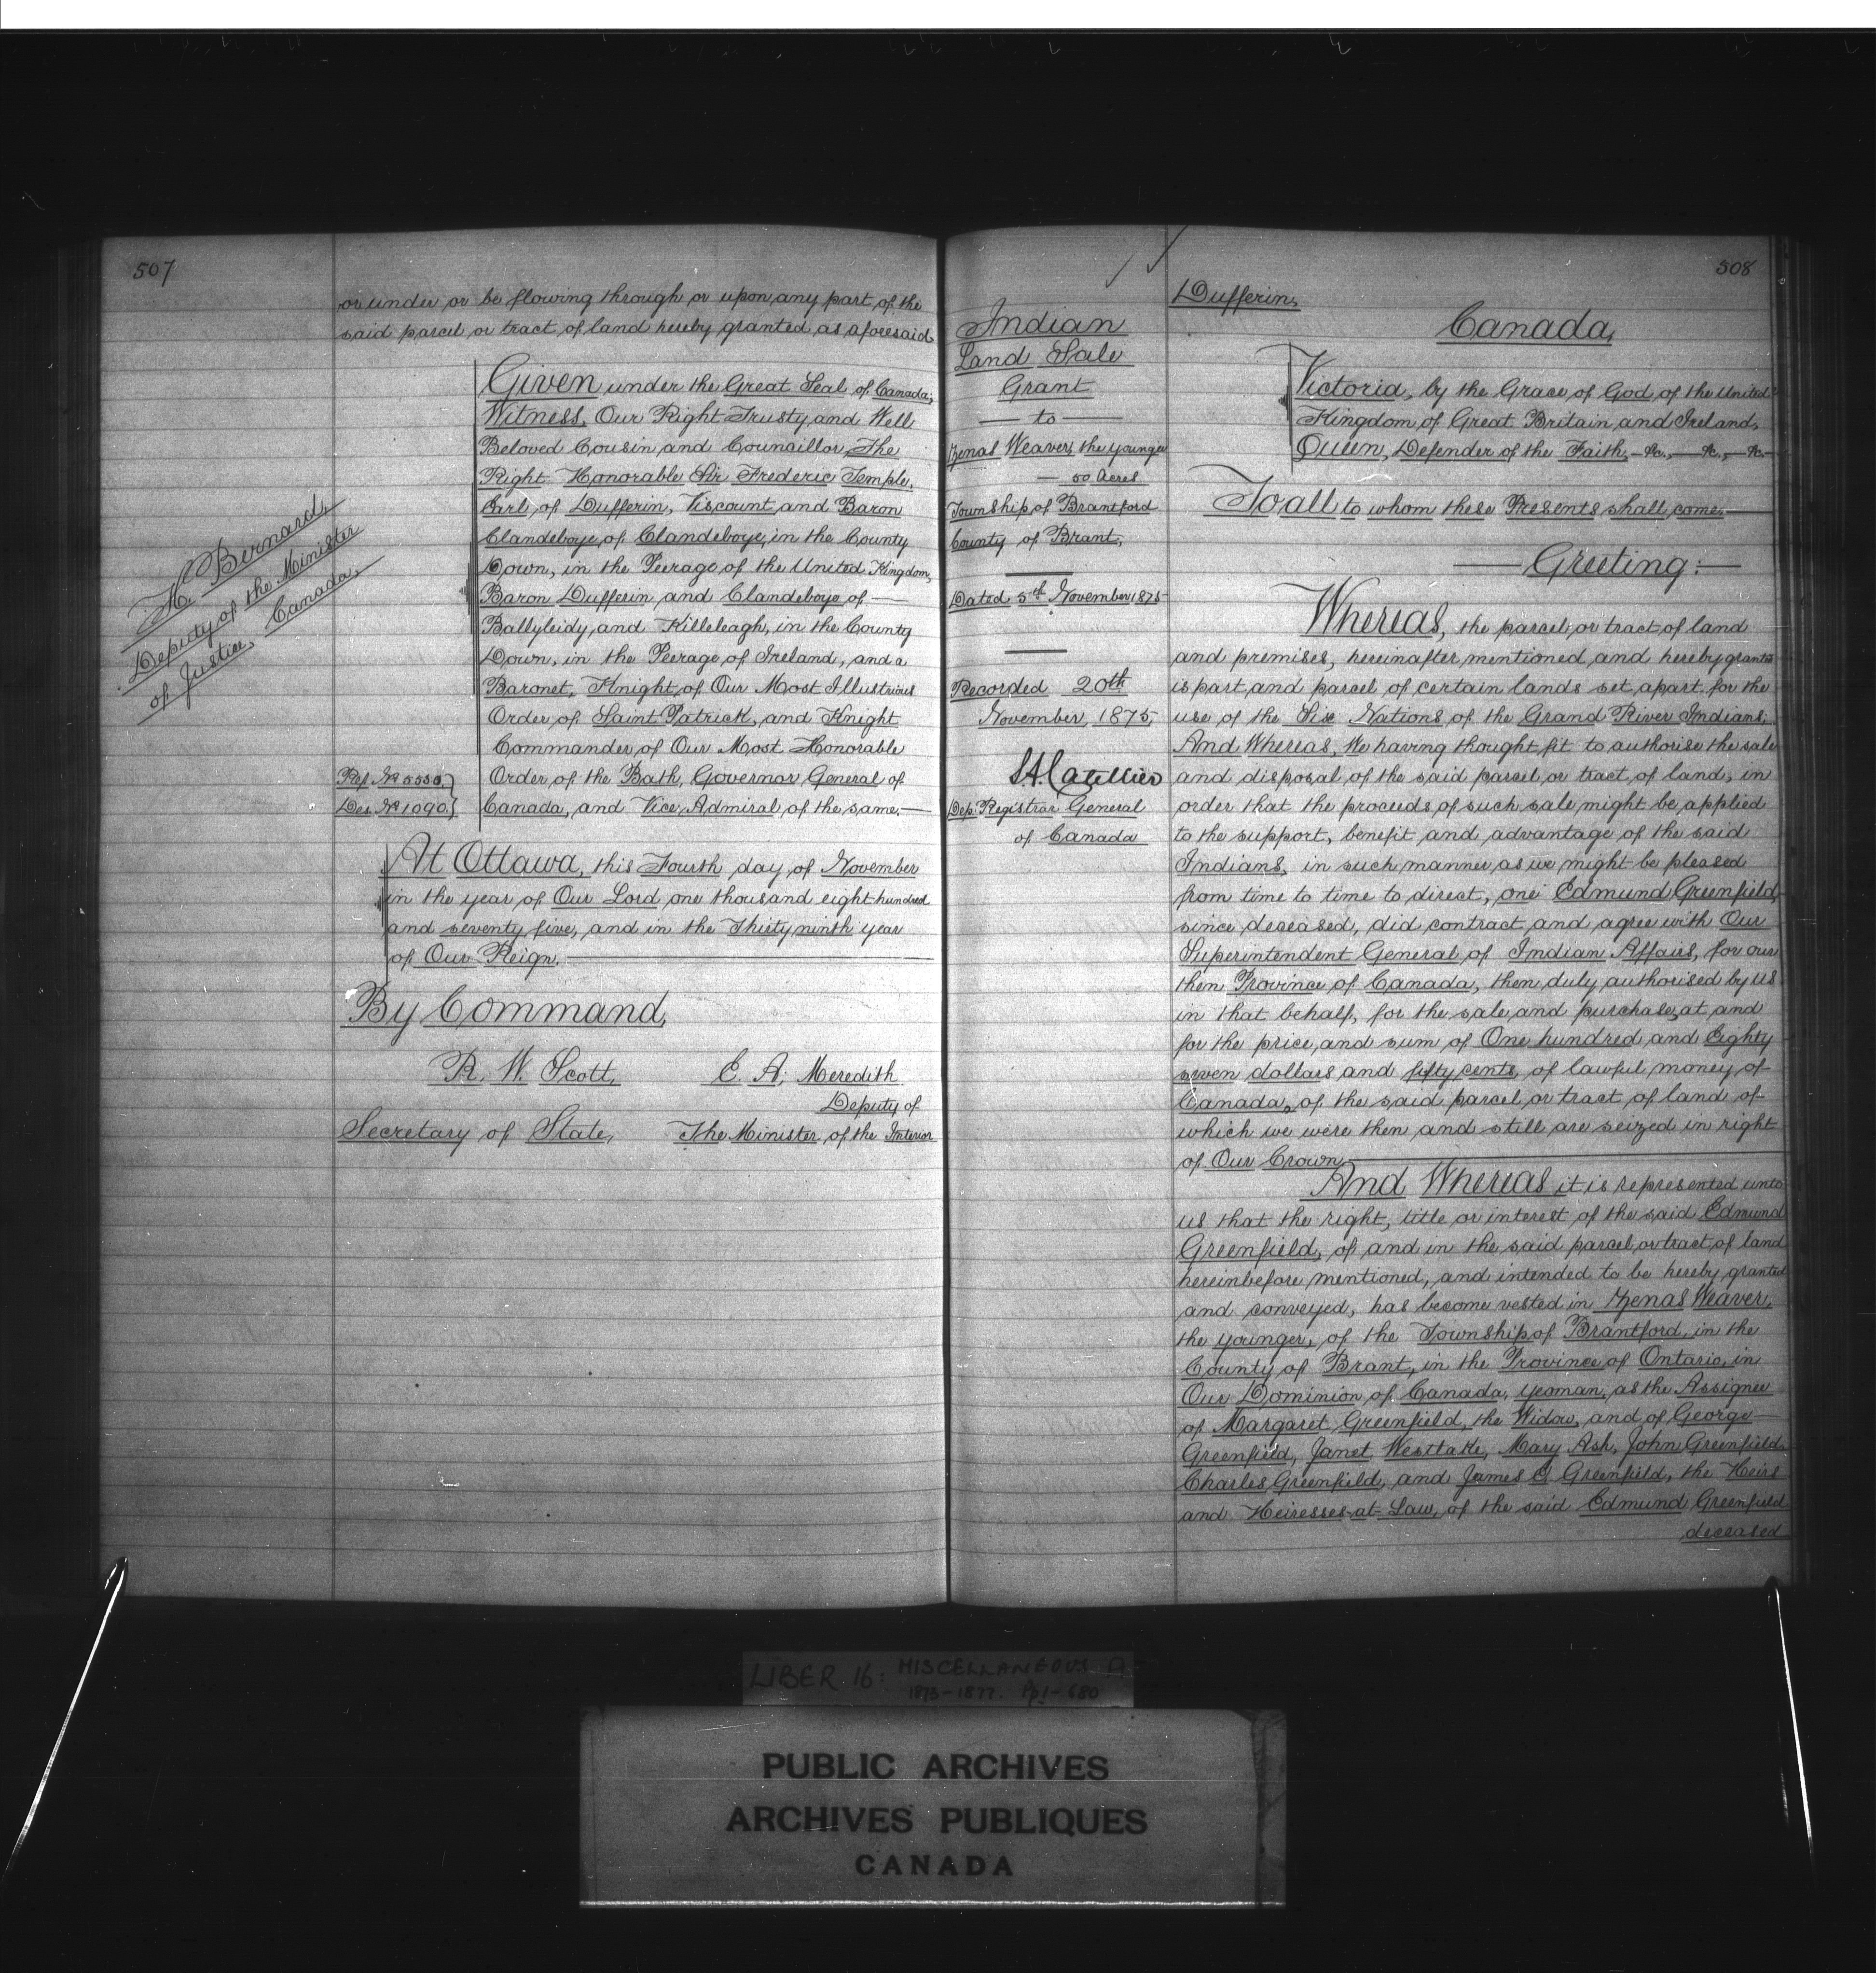 507
or under or be flowing through or upon any part of the
said parcel or tract of land hereby granted as aforesaid.
Given under the Great Seal of Canada;
Witness, Our Right Trusty and Well
Beloved Cousin and Councillor The
Right Honorable Sir Frederic Temple,
Earl of Dufferin, Viscount and Baron
Clandeboye of Clandeboye, in the County
Down, in the Peerage of the United Kingdom,
Baron Dufferin and Clandeboye of —
Ballyleidy, and Killeleagh, in the County
Down, in the Peerage of Ireland, and a
Baronet, Knight of Our Most Illustrious
Order of Saint Patrick, and Knight
Commander of Our Most Honorable
Order of the Bath, Governor General of
Canada, and Vice Admiral of the same.—
H. Bernard,
Deputy of the Minister
of Justice, Canada.
Ref. No 5550.}
Des. No 1090.}
At Ottawa, this Fourth day of November
in the year of Our Lord one thousand eight hundred
and seventy five, and in the Thirty ninth year
of Our Reign.—
By Command,
R. W. Scott, E. A. Meredith
Deputy of
Secretary of State, The Minister of the Interior
508
Indian
Land Sale
Grant
— to —
Zenas Weaver, the younger
— 50 Acres
Township of Brantford
County of Brant,
Dated 5th November 1875
Recorded 20th
November, 1875,
Dep. Registrar General
of Canada
Dufferin,
Canada,
Victoria, by the Grace of God, of the United
Kingdom of Great Britain and Ireland,
Queen, Defender of the Faith, —&c.,— &c., —&c.—
To all to whom these Presents shall come.—
— Greeting:—
Whereas, the parcel or tract of land
and premises, hereinafter mentioned and hereby granted
is part and parcel of certain lands set apart for the
use of the Six Nations of the Grand River Indians.
And Whereas, We having thought fit to authorise the sale
and disposal of the said parcel or tract of land, in
order that the proceeds of such sale might be applied
to the support, benefit and advantage of the said
Indians, in such manner as we might be pleased
from time to time to direct, one Edmund Greenfield,
since deceased, did contract and agree with Our
Superintendent General of Indian Affairs, for our
then Province of Canada, then duly authorised by us
in that behalf, for the sale and purchase, at and
for the price and sum of One hundred and Eighty
seven dollars and fifty cents, of lawful money of
Canada, of the said parcel or tract of land of
which we were then and still are seized in right
of Our Crown.—
And Whereas it is represented unto
us that the right, title or interest of the said Edmund
Greenfield, of and in the said parcel or tract of land
hereinbefore mentioned, and intended to be hereby granted
and conveyed, has become vested in Zenas Weaver,
the younger, of the Township of Brantford, in the
County of Brant, in the Province of Ontario, in
Our Dominion of Canada, yeoman, as the Assignee
of Margaret Greenfield, the Widow, and of George
Greenfield, Janet Westlake, Mary Ash, John Greenfield,
Charles Greenfield, and James C. Greenfield, the Heirs
and Heiresses-at-Law, of the said Edmund Greenfield
deceased
LIBER 16: MISCELLANEOUS A
1873-1877. Pp 1-680
PUBLIC ARCHIVES
ARCHIVES PUBLIQUES
CANADA